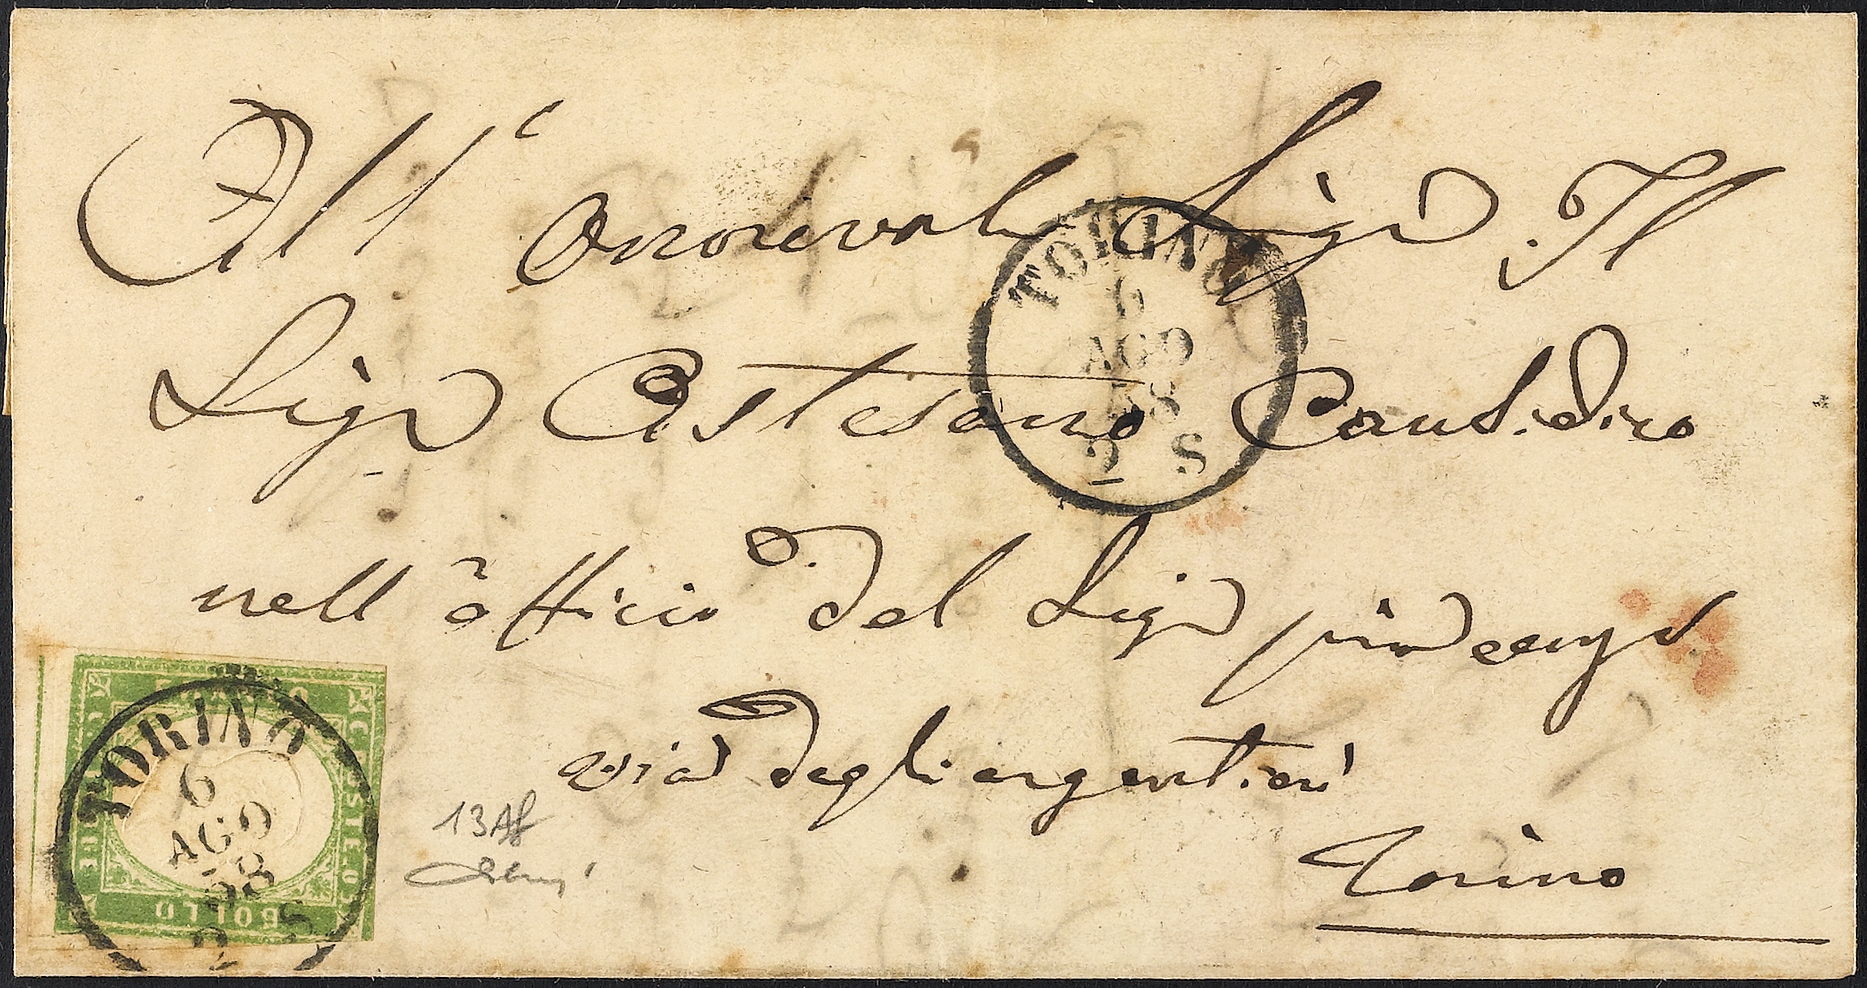 All' Onorevole Sigr Il
Sigr Astesano Causidico
nell officio del Sigr
via degli argentieri
Torino
TORINO
6
AGO
58
2 S
TORINO
6
AGO
58
2 S
C. CINQUE
FRANCO
POSTE
BOLLO
13Af